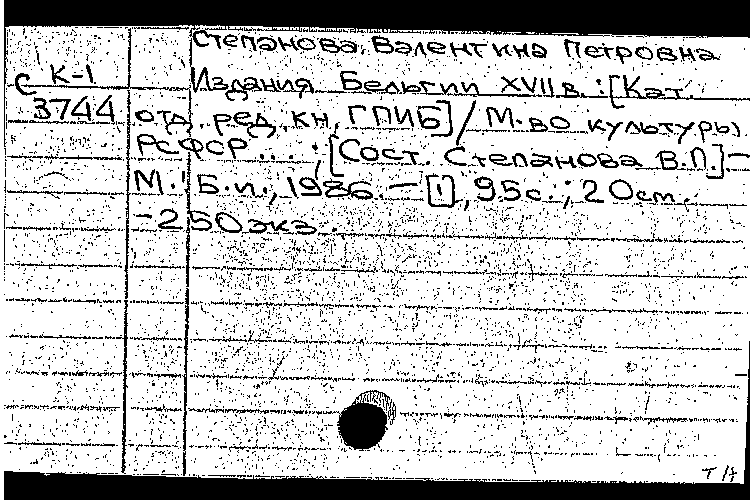 Степанова, Валентина Петровна
С К-1
3744
Издания Бельгии XVII в. : [Кат.
отд. ред. кн. ГПИБ] / М-во культуры
РСФСР... ; [Сост. Степанова В.П.] –
М. : Б. и., 1986. – [1], 95 с. ; 20 см.
– 250 экз.